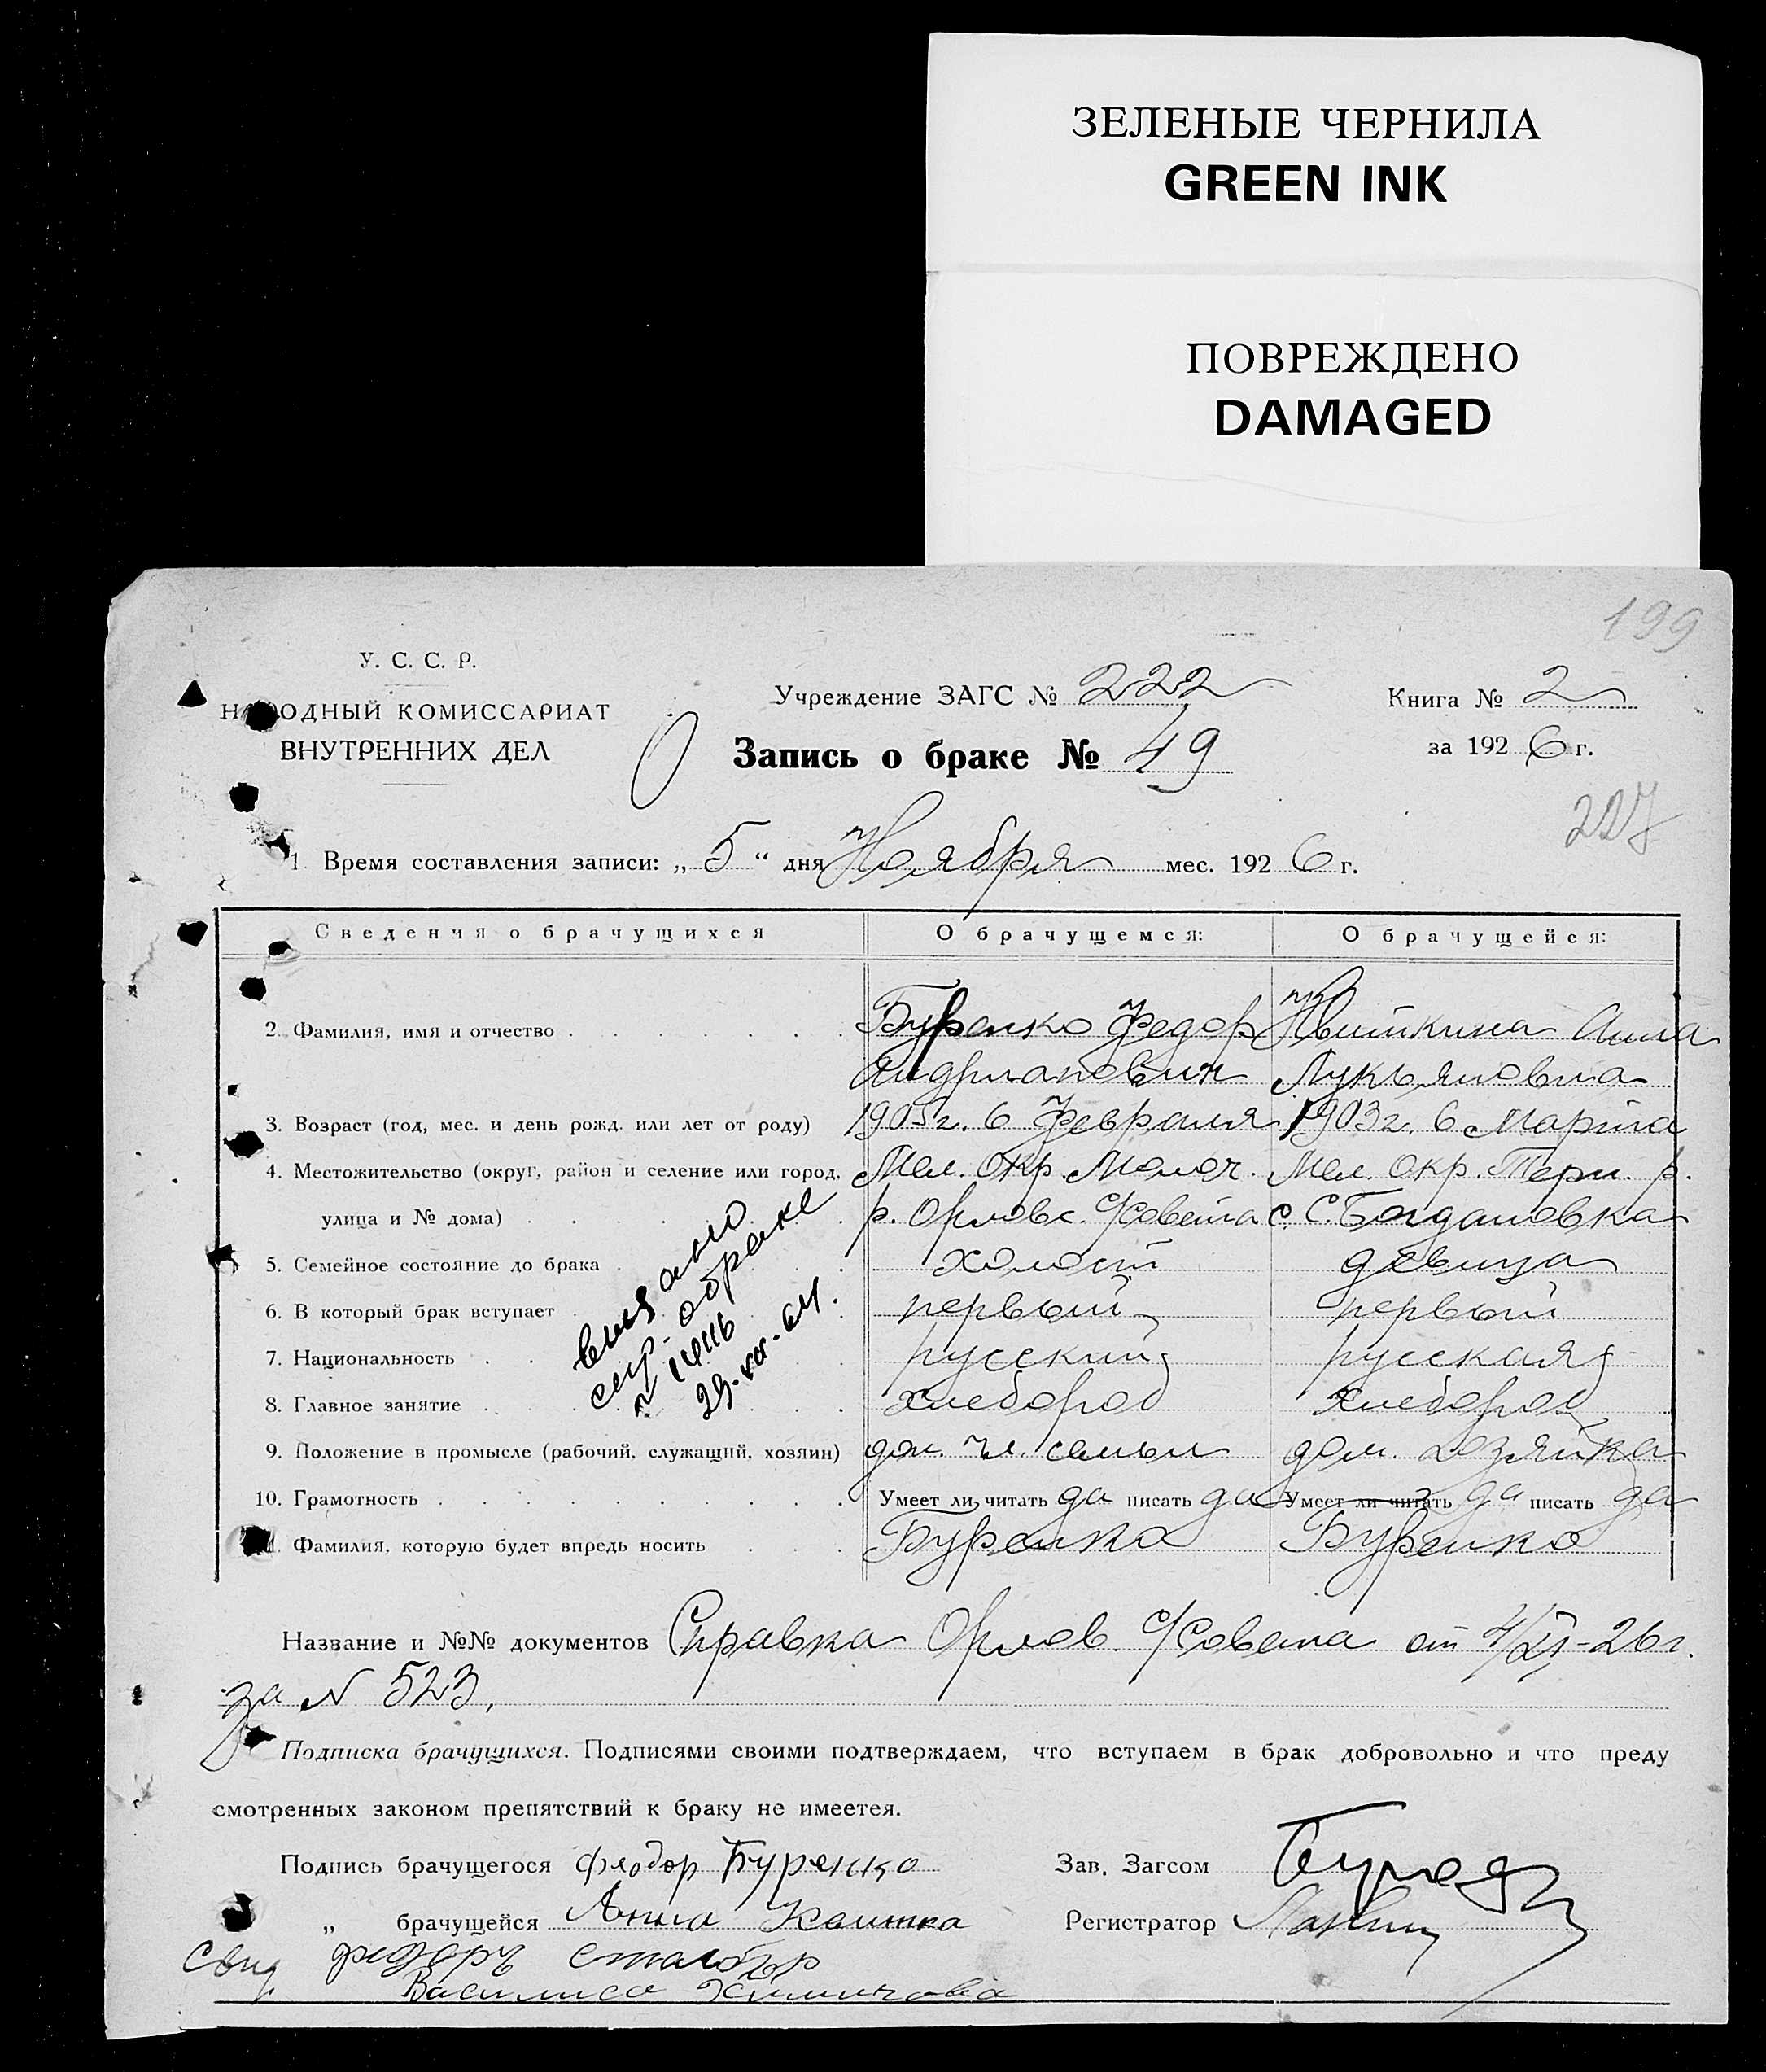 ЗЕЛЕНЫЕ ЧЕРНИЛА
GREEN INK
ПОВРЕЖДЕНО
DAMAGED
199
У. С. С. Р.
НАРОДНЫЙ КОМИССАРИАТ
ВНУТРЕННИХ ДЕЛ
Учреждение ЗАГС № 222
Книга № 2
Запись о браке № 49
за 1926 г.
227
1. Время составления записи: „5“ дня Ноября мес. 1926 г.
Сведения о брачущихся О брачущемся: О брачущейся:
2. Фамилия, имя и отчество Буренко Федор Анна
Андрианович Лукьяновна
3. Возраст (год, мес. и день рожд. или лет от роду) 1905 г. 6 Февраля 1903 г. 6 Марта
4. Местожительство (округ, район и селение или город, Мел. Окр. Молоч. Мел. Окр. Терп. р.
улица и № дома) р. Орловс. С/Совета с. Богдановка
5. Семейное состояние до брака холост девица
6. В который брак вступает первый первый
7. Национальность русский русская
8. Главное занятие хлебороб хлебороб
9. Положение в промысле (рабочий, служащий, хозяин) чл. семьи дом. хозяйка
10. Грамотность Умеет ли читать да писать да Умеет ли читать да писать да
11. Фамилия, которую будет впредь носить Буренко Буренко
о браке
29.
64.
Название и №№ документов Справка Орлов. С/Совета от 4/XI-26 г.
за N 523,
Подписка брачущихся. Подписями своими подтверждаем, что вступаем в брак добровольно и что преду
смотренных законом препятствий к браку не имеетея.
Подпись брачущегося Фядор Буренко
Зав. Загсом
„ брачущейся Анна
Регистратор
Свид.
Василиса